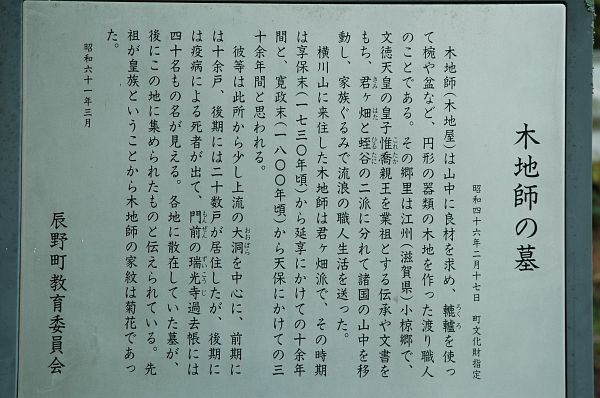 木地師の墓
昭和四十六年二月十七日 町文化財指定
木地師(木地屋)は山中に良材を求め、轆轤を使っ
て椀や盆など、円形の器類の木地を作った渡り職人
のことである。その郷里は江州(滋賀県)小椋郷で、
文徳天皇の皇子惟喬親王を業祖とする伝承や文書を
もち、君ヶ畑と蛭谷の二派に分れて諸国の山中を移
動し、家族ぐるみで流浪の職人生活を送った。
横川山に来住した木地師は君ヶ畑派で、その時期
は享保末(一七三〇年頃)から延享にかけての十余年
間と、寛政末(一八〇〇年頃)から天保にかけての三
十余年間と思われる。
彼等は此所から少し上流の大洞を中心に、前期に
は十余戸、後期には二十数戸が居住したが、後期に
は疫病による死者が出て、門前の瑞光寺過去帳には
四十名もの名が見える。各地に散在していた墓が、
後にこの地に集められたものと伝えられている。先
祖が皇族ということから木地師の家紋は菊花であっ
た。
昭和六十一年三月
辰野町教育委員会